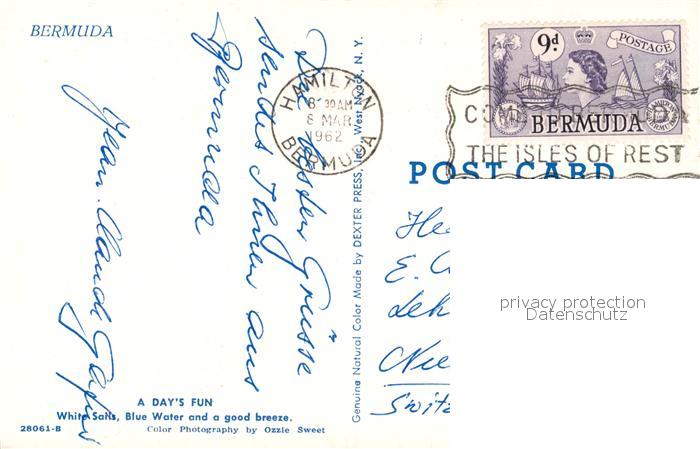 BERMUDA
Die besten Grüsse
sendet Ihnen aus
Bermuda
Jean-Claude
A DAY'S FUN
White Sails, Blue Water and a good breeze.
28061-B
Color Photography by Ozzie Sweet
Genuine Natural Color Made by DEXTER PRESS, Inc. West Nyack, N. Y.
HAMILTON
8 30 AM
8 MAR
1962
BERMUDA
9d
POSTAGE
BERMUDA
CO
THE ISLES OF REST
POST CARD
He
E.
Leh
Nie
Switz
privacy protection
Datenschutz